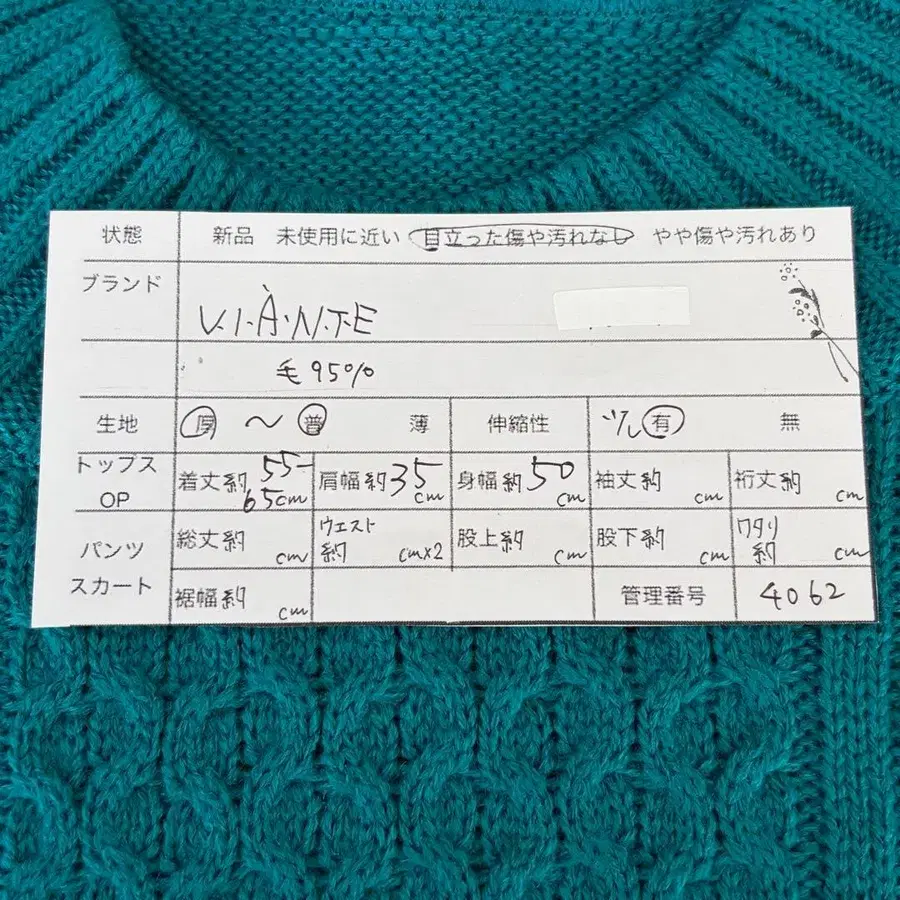 状態 新品 未使用に近い 目立った傷や汚れなし やや傷や汚れあり
ブランド V.I.À.N.T.E
毛95%
生地 厚 〜 普 薄 伸縮性 少し 有 無
トップス
OP
着丈約55-65cm 肩幅約35cm 身幅約50cm 袖丈約 cm 裄丈約 cm
パンツ
スカート
総丈約 cm ウエスト約 cm×2 股上約 cm 股下約 cm ワタリ約 cm
裾幅約 cm 管理番号 4062